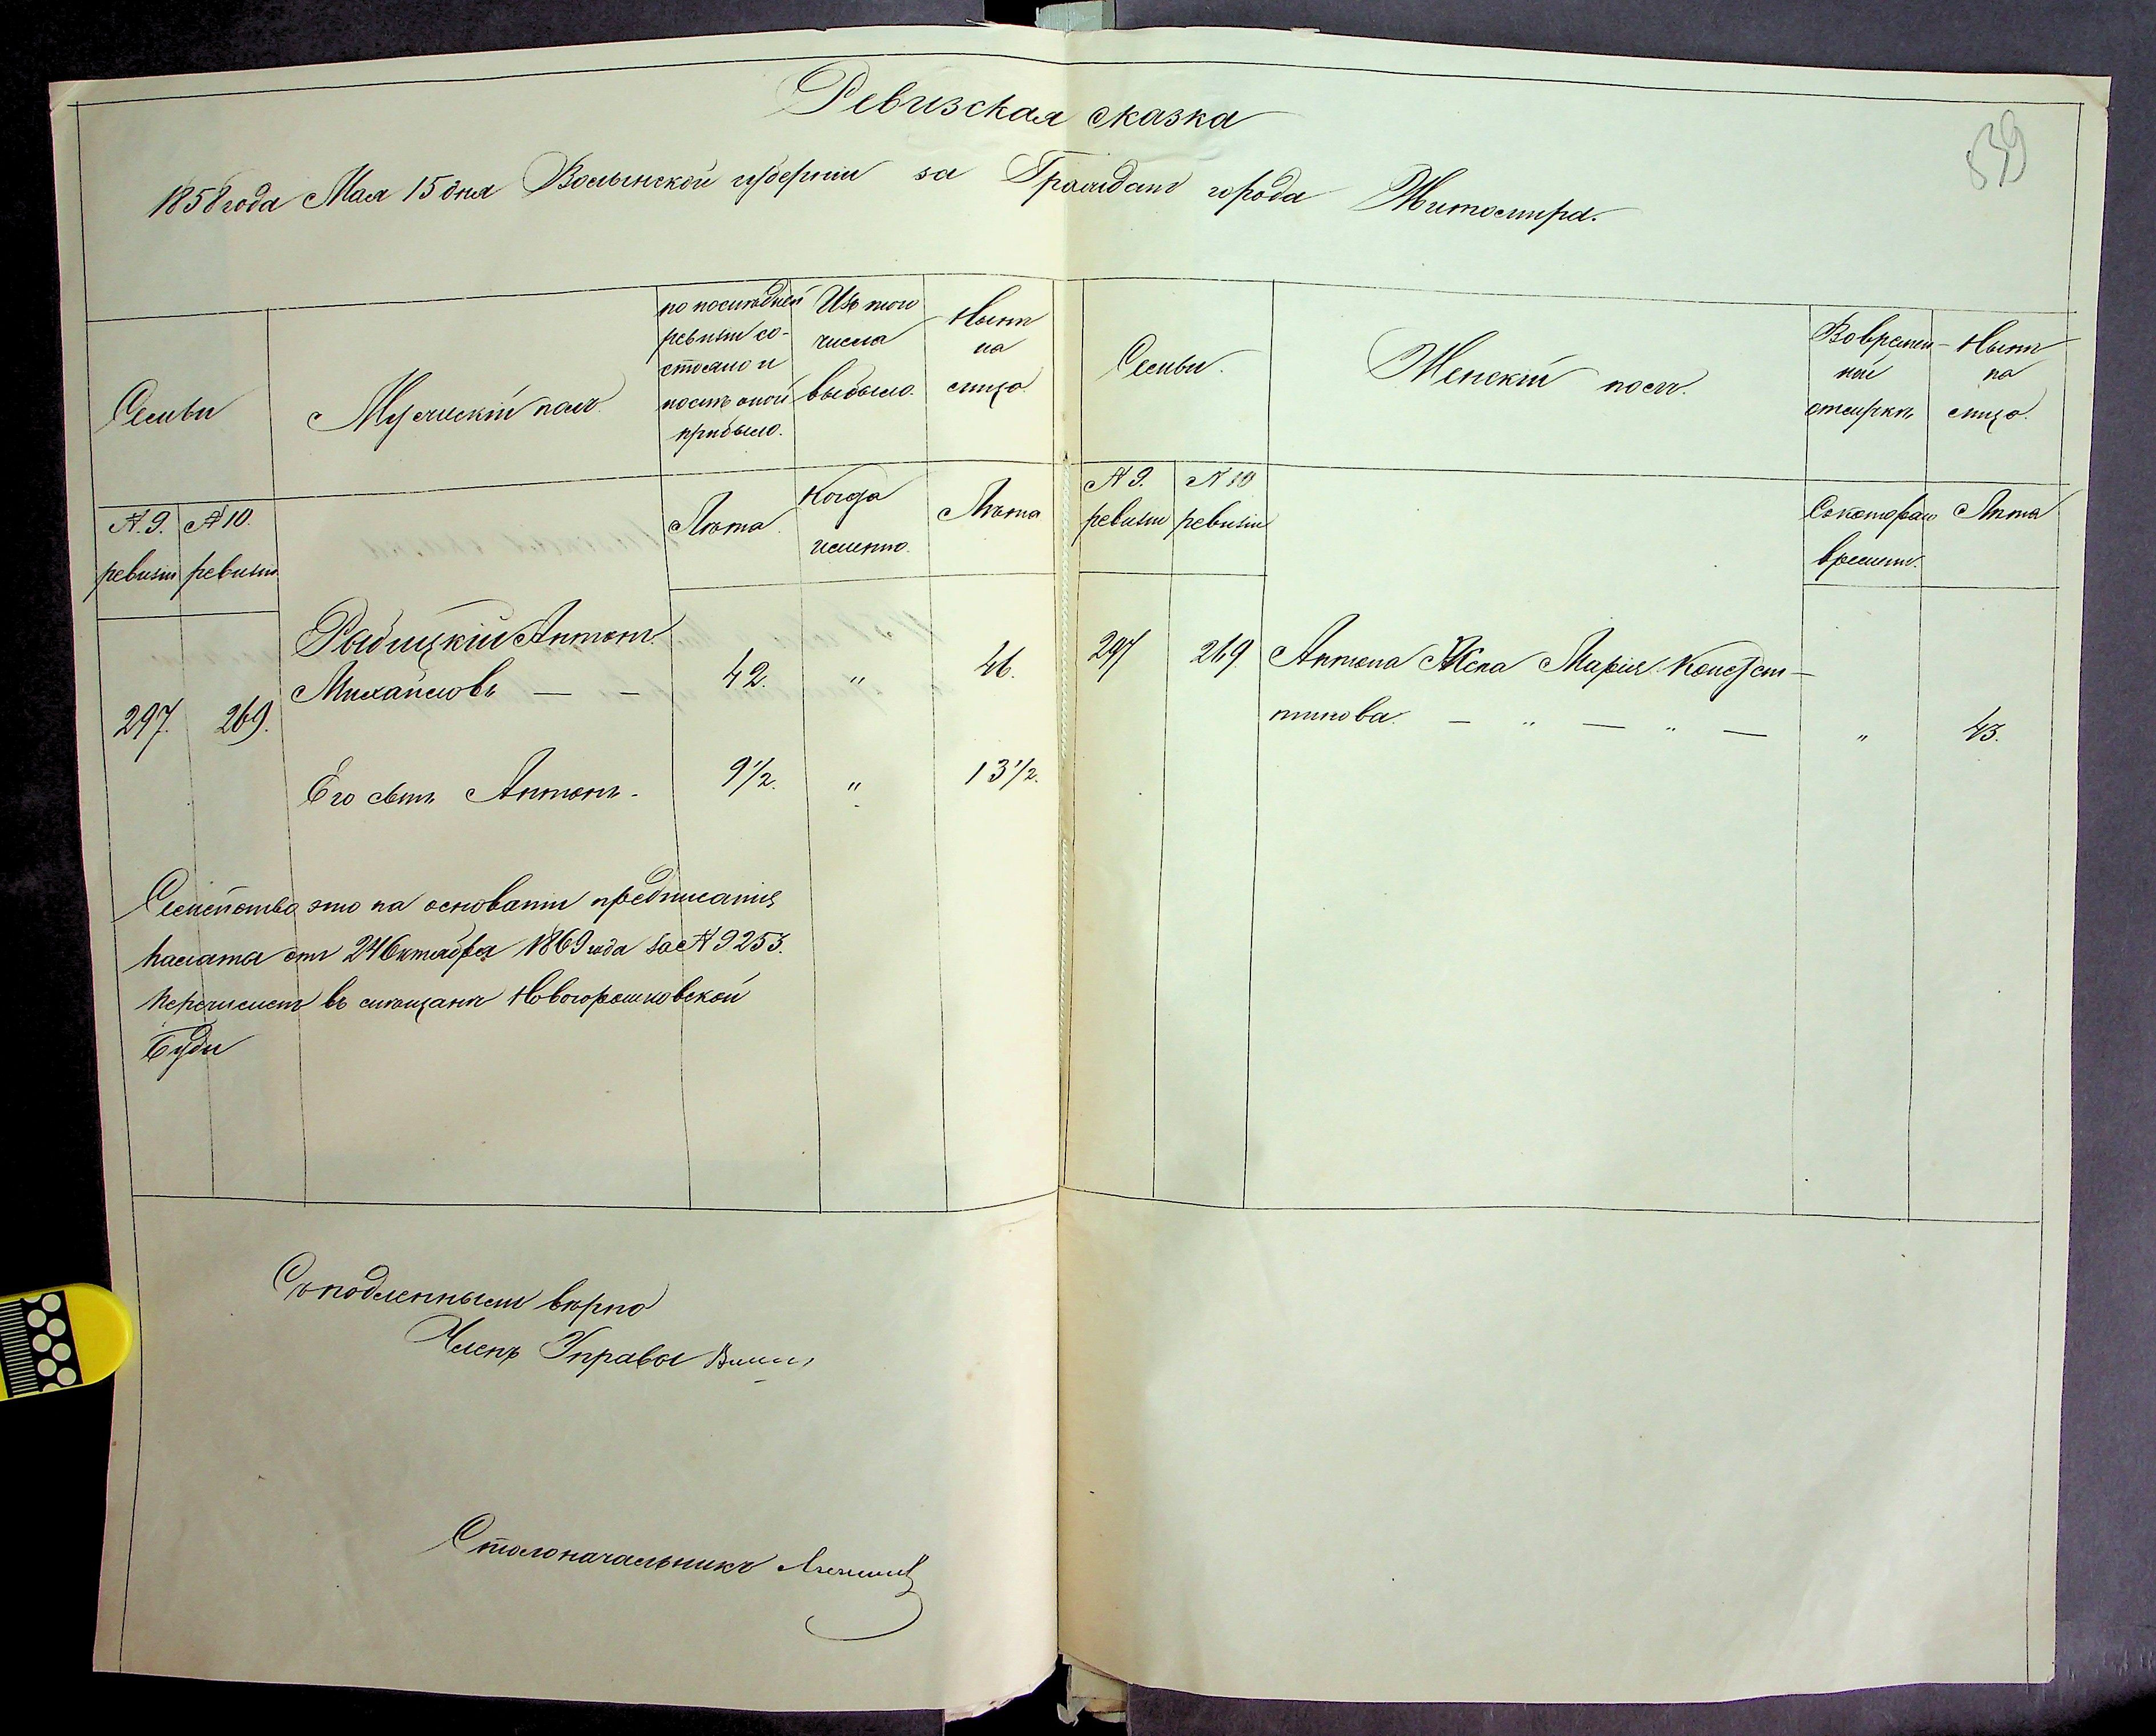 Ревизская сказка
539
1858 года Мая 15 дня Волынской губерніи за Граждан города Житомира.
Семьи
Мужескій полъ.
по последней ревизіи состояло и после оной прибыло.
Изъ того числа выбыло.
Ныне на лицо.
№ 9. ревизіи
№ 10. ревизіи
Лета
Когда именно.
Лета
297.
269.
Рабицкій Антонъ
Михайловъ — — 42. " 46.
Его сынъ Антонъ. 9½. " 13½.
Семейство это на основаніи предписанія
палаты отъ 24 Октября 1869 года за № 9253.
перечислен въ мещане Новогорошковской
Буды
Семьи.
Женскій полъ.
Во временной отлучке
Ныне на лицо.
№ 9. ревизіи
№ 10 ревизіи
Съ котораго времени.
Лета
297 269. Антона Жена Марія Констан-
тинова. — " — " — " 43.
Съ подленнымъ верно
Членъ Управы
Столоначальникъ